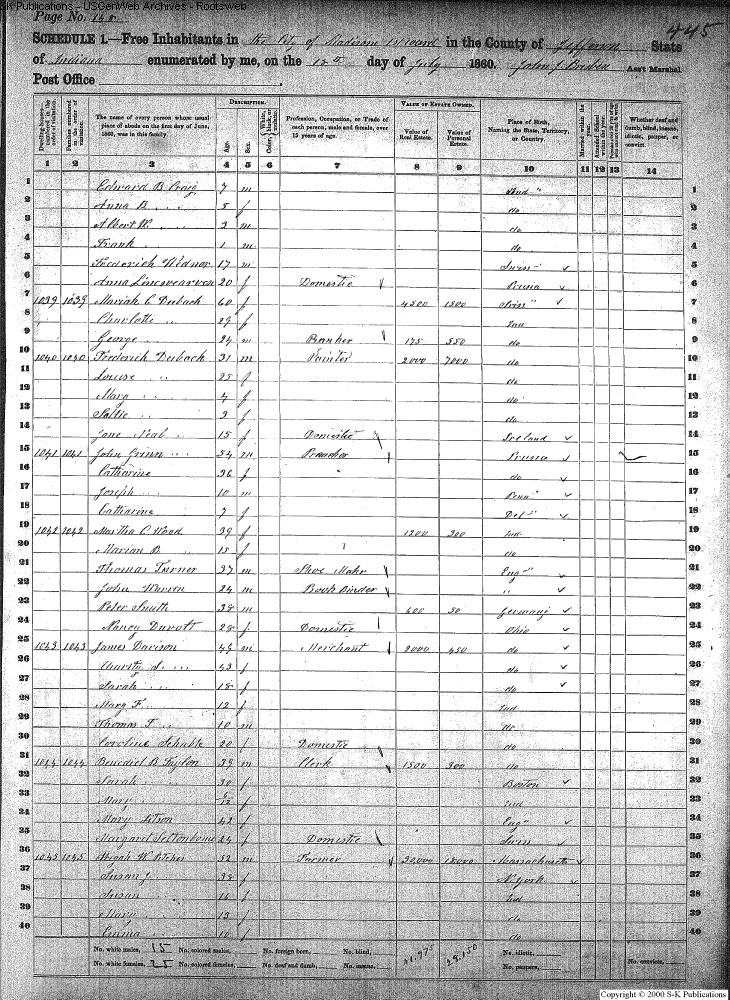 S-K Publications - USGenWeb Archives - Rootsweb
Page No. 145
445
SCHEDULE 1.—Free Inhabitants in the City of Madison in the County of Jefferson State
of Indiana enumerated by me, on the day of July 1860. John J. Ass't Marshal
Post Office
Dwelling-houses—numbered in the order of visitation.
Families numbered in the order of visitation.
The name of every person whose usual place of abode on the first day of June, 1860, was in this family.
DESCRIPTION.
Age.
Sex.
Color, White, black, or mulatto.
Profession, Occupation, or Trade of each person, male and female, over 15 years of age.
VALUE OF ESTATE OWNED.
Value of Real Estate.
Value of Personal Estate.
Place of Birth, Naming the State, Territory, or Country.
Married within the year.
Attended School within the year.
Whether deaf and dumb, blind, insane, idiotic, pauper, or convict.
1 2 3 4 5 6 7 8 9 10 11 12 13 14
1 Edward B Craig 7 m Ind " 1
2 Anna B. 5 f do 2
3 Albert W. 3 m do 3
4 Frank 1 m do 4
5 Frederich Widnor 17 m Swis 5
6 Anna 20 f Domestic Prusia 6
7 1039 1039 Mariah C Deibach 60 f 4500 1500 7
8 Charlotte " 29 f Ind 8
9 George 24 m 175 550 do 9
10 1040 1040 Frederich Deibach 31 m Painter 2000 7000 do 10
11 Louise 25 f do 11
12 Mary 4 f do 12
13 Sallie 3 f do 13
14 Jane Neal 15 f Domestic Ireland 14
15 1041 1041 John 54 m Prusia 15
16 Catharine 36 f do 16
17 Joseph 10 m Penn 17
18 Catharine 7 f Del 18
19 1042 1042 Martha C. Wood 39 f 1200 300 Ind 19
20 Marian B 15 f do 20
21 Thomas Turner 37 m Shoe Makr Eng 21
22 John Warren 24 m Book Binder " 22
23 Peter Smith 38 m 400 50 Germany 23
24 Nancy 28 f Domestic Ohio 24
25 1043 1043 James Davison 49 m Merchant 2000 450 do 25
26 Charity S. 43 f do 26
27 Sarah 18 f do 27
28 Mary F. 12 f Ind 28
29 Thomas T 10 m do 29
30 Caroline Schuble 20 f Domestic do 30
31 1044 1044 Benedict B 39 m Clerk 1500 300 do 31
32 Sarah 30 f Boston 32
33 Mary Ind 33
34 Mary Litson 42 f Eng 34
35 Margaret 24 f Domestic Swis 35
36 1045 1045 W. Pitcher 52 m Farmer 30,000 18000 Massachusets 36
37 Susan J 38 f N. York 37
38 Susan 16 f Ind 38
39 Mary 13 f do 39
40 Emma 10 f do 40
No. white males, 15 No. colored males, No. foreign born, No. blind, 41,975 29,150 No. idiotic,
No. white females, 25 No. colored females, No. deaf and dumb, No. insane, No. paupers, No. convicts,
Copyright © 2000 S-K Publications